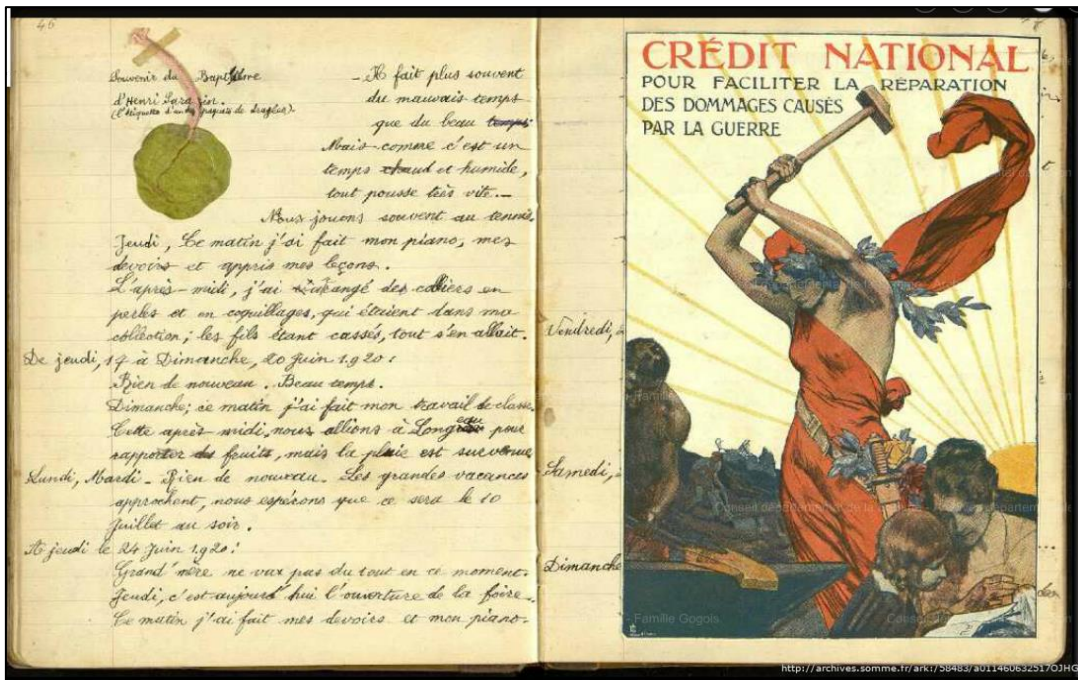 46
Souvenir du Baptême
d'Henri Sarazin.
(l'étiquette d'un paquet de dragées).
- Il fait plus souvent
du mauvais temps
que du beau temps
Mais comme c'est un
temps chaud et humide,
tout pousse très vite. -
Nous jouons souvent au tennis
Jeudi, Ce matin j'ai fait mon piano, mes
devoirs et appris mes leçons.
L'après-midi, j'ai des colliers en
perles et en coquillages, qui étaient dans ma
collection; les fils étant cassés, tout s'en allait.
De jeudi, 17 à Dimanche, 20 Juin 1920:
Rien de nouveau. Beau temps.
Dimanche; ce matin j'ai fait mon travail de classe.
Cette après-midi, nous allions à Longueau pour
rapporter des fruits, mais la pluie est survenue
Lundi, Mardi - Rien de nouveau. Les grandes vacances
approchent, nous espérons que ce sera le 10
Juillet au soir.
A jeudi le 24 Juin 1920:
Grand'mère ne va pas du tout en ce moment.
Jeudi, c'est aujourd'hui l'ouverture de la foire.
Ce matin j'ai fait mes devoirs et mon piano.
CRÉDIT NATIONAL
POUR FACILITER LA RÉPARATION
DES DOMMAGES CAUSÉS
PAR LA GUERRE
Vendredi,
Samedi,
Dimanche
Conseil départemental de la
- Famille Gogois
Famille Gogois
http://archives.somme.fr/ark:/58483/a011460632517OJHG